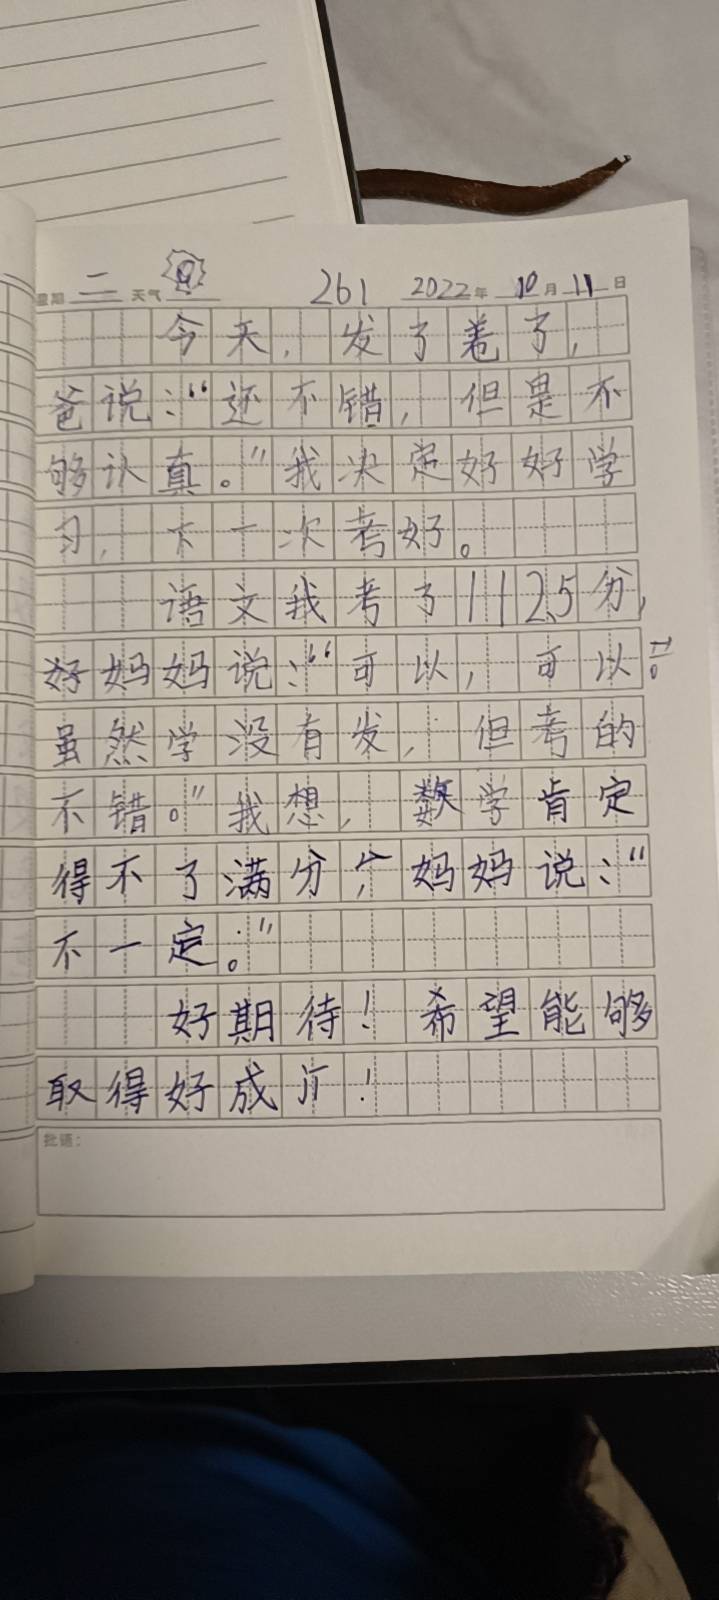 星期 二 天气 261 2022年 10月 11日
今天，发了卷了，
爸说：“还不错，但是不
够认真。”我决定好好学
习，下一次考好。
语文我考了112.5分，
好妈妈说：“可以，可以
虽然学没有发，但考的
不错。”我想，数学肯定
得不了满分，妈妈说：“
不一定。”
好期待！希望能够
取得好成！
批语：